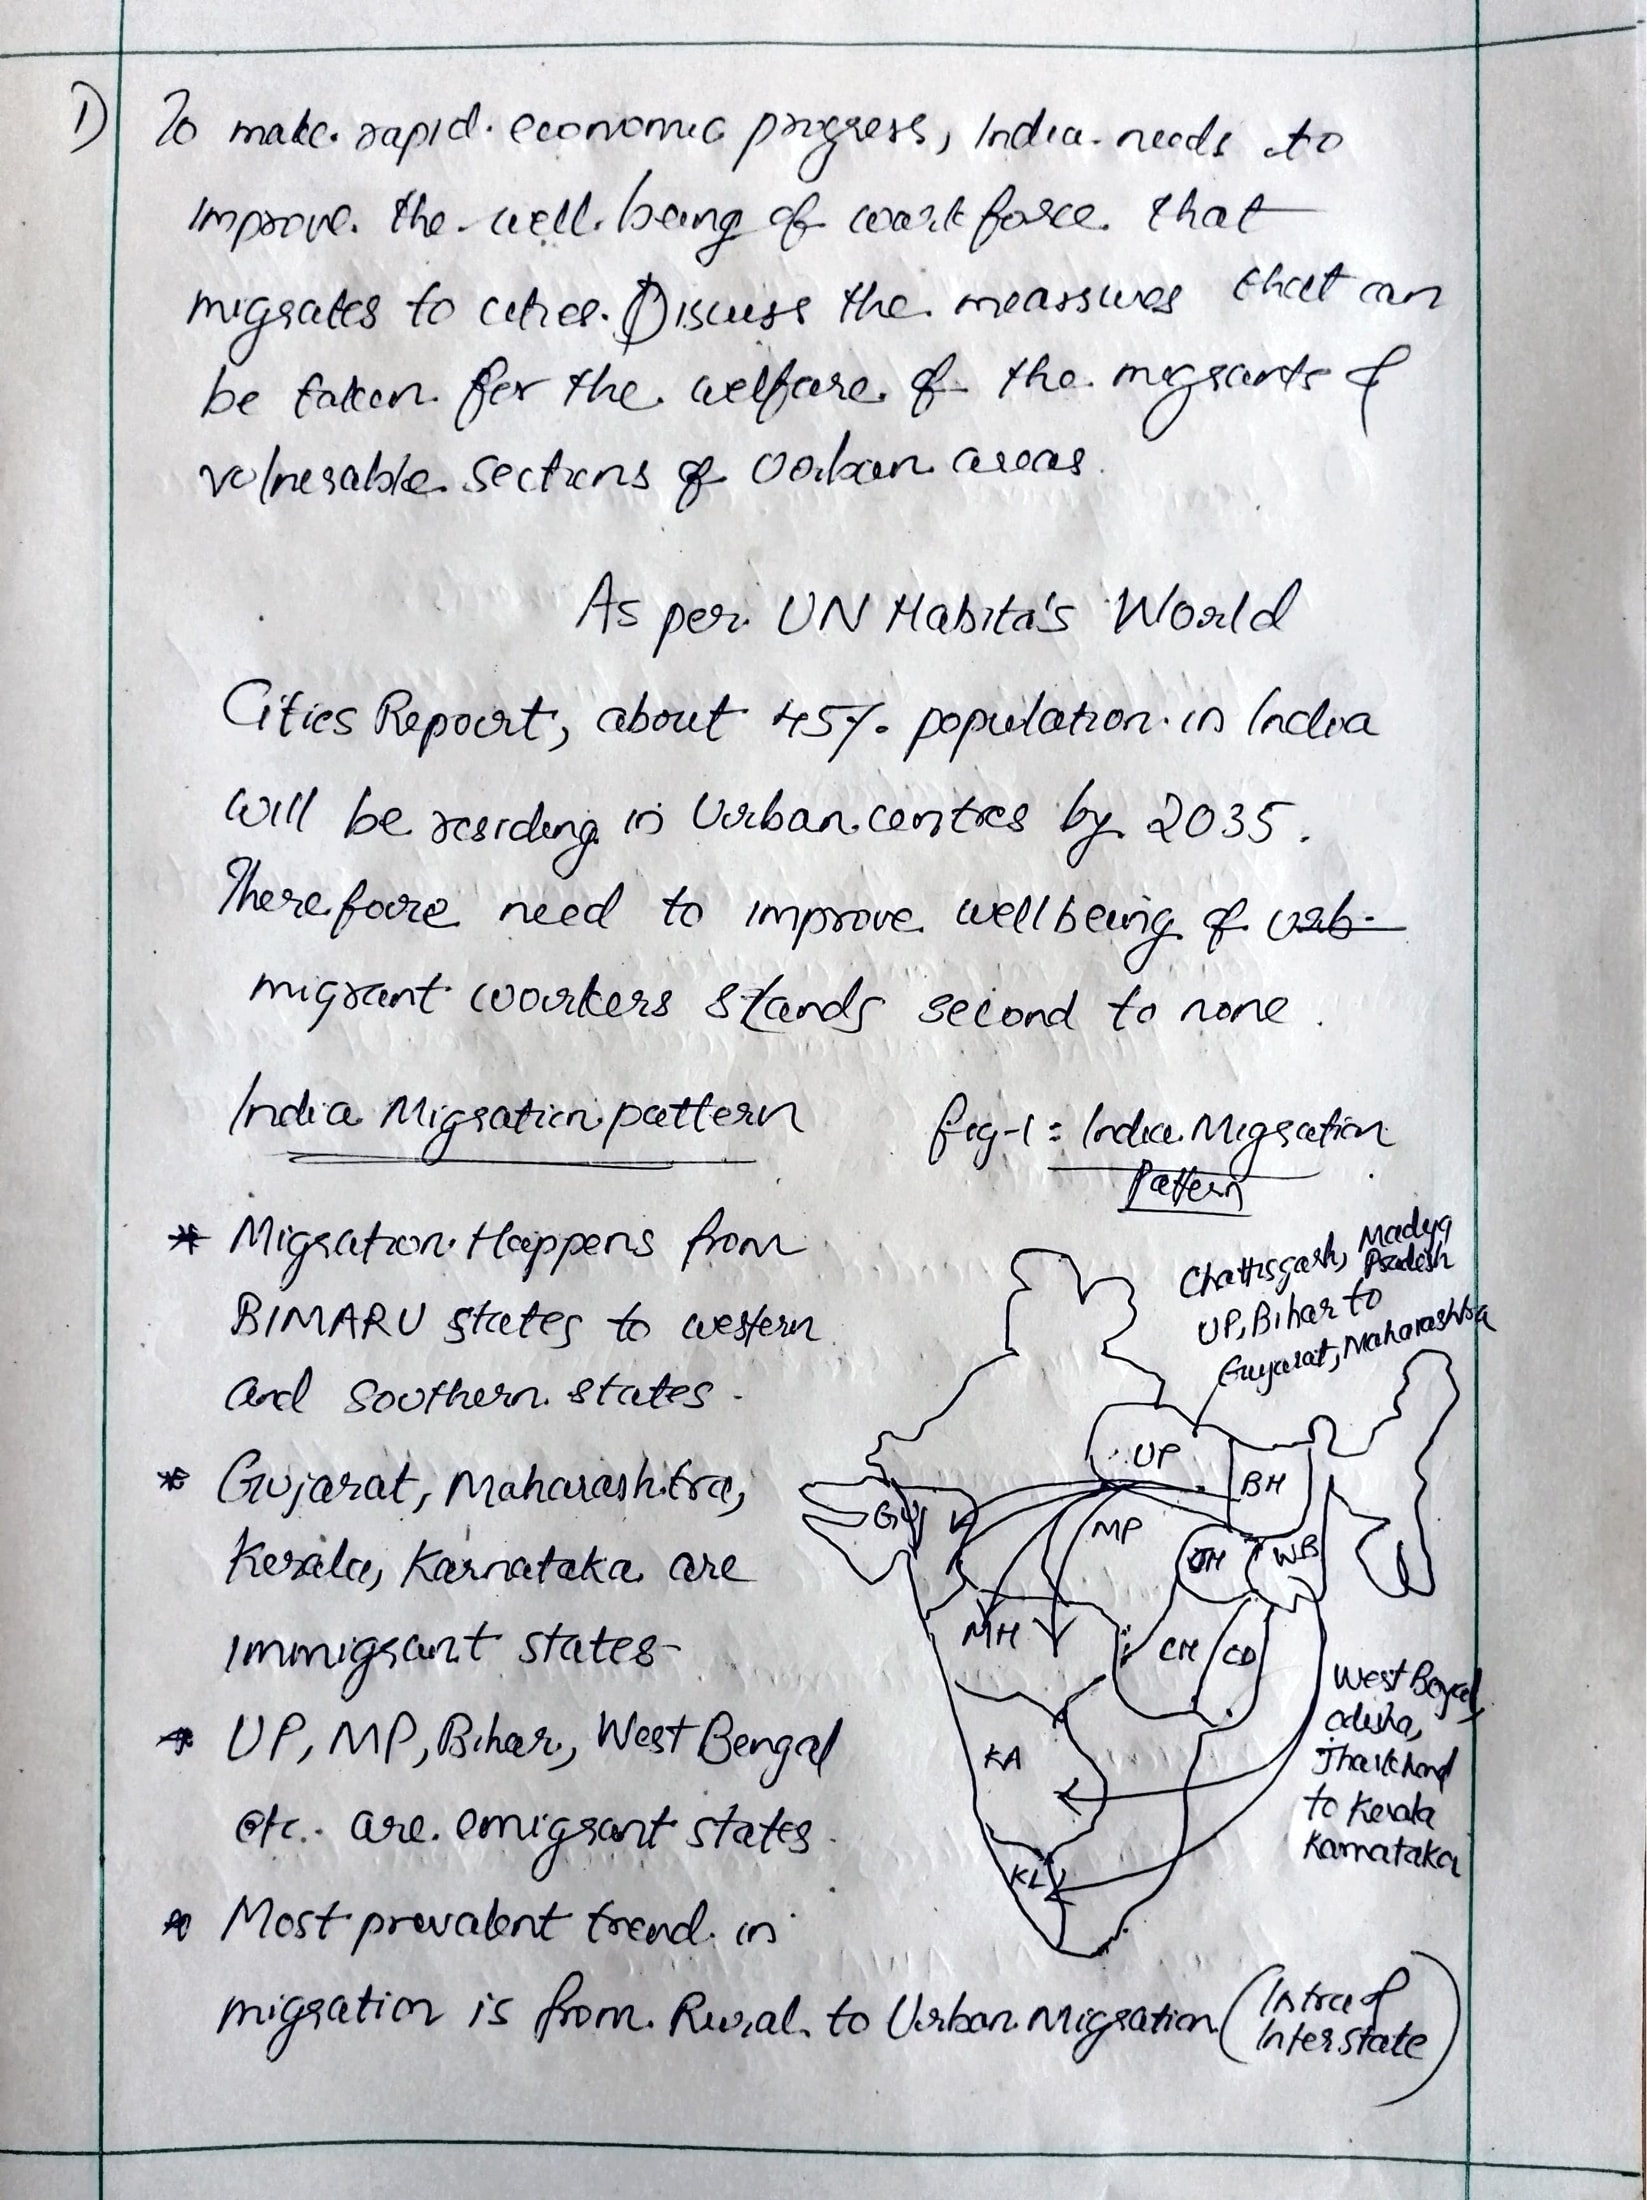 1) To make rapid economic progress, India needs to
improve the well being of workforce that
migrates to cities. Discuss the meassures that can
be taken for the welfare of the migrants &
vulnerable sections of Urban areas.
As per UN Habita's World
Cities Report, about 45% population in India
will be residing in Urban centres by 2035.
Therefore need to improve wellbeing of urb
migrant workers stands second to none.
India Migration pattern
fig-1: India Migration
Pattern
* Migration Happens from
BIMARU states to western
and southern states.
* Gujarat, Maharashtra,
Kerala, Karnataka are
immigrant states-
* UP, MP, Bihar, West Bengal
etc. are emigrant states.
* Most prevalent trend in
migration is from Rural to Urban Migration (Intra &
Interstate)
Chattisgarh, Madya
Pradesh
UP, Bihar to
Gujarat, Maharashtra
UP
BH
GUJ
MP
JH
WB
MH
CH
OD
KA
KL
West Bengal,
Odisha,
Jharkhand
to Kerala
Karnataka